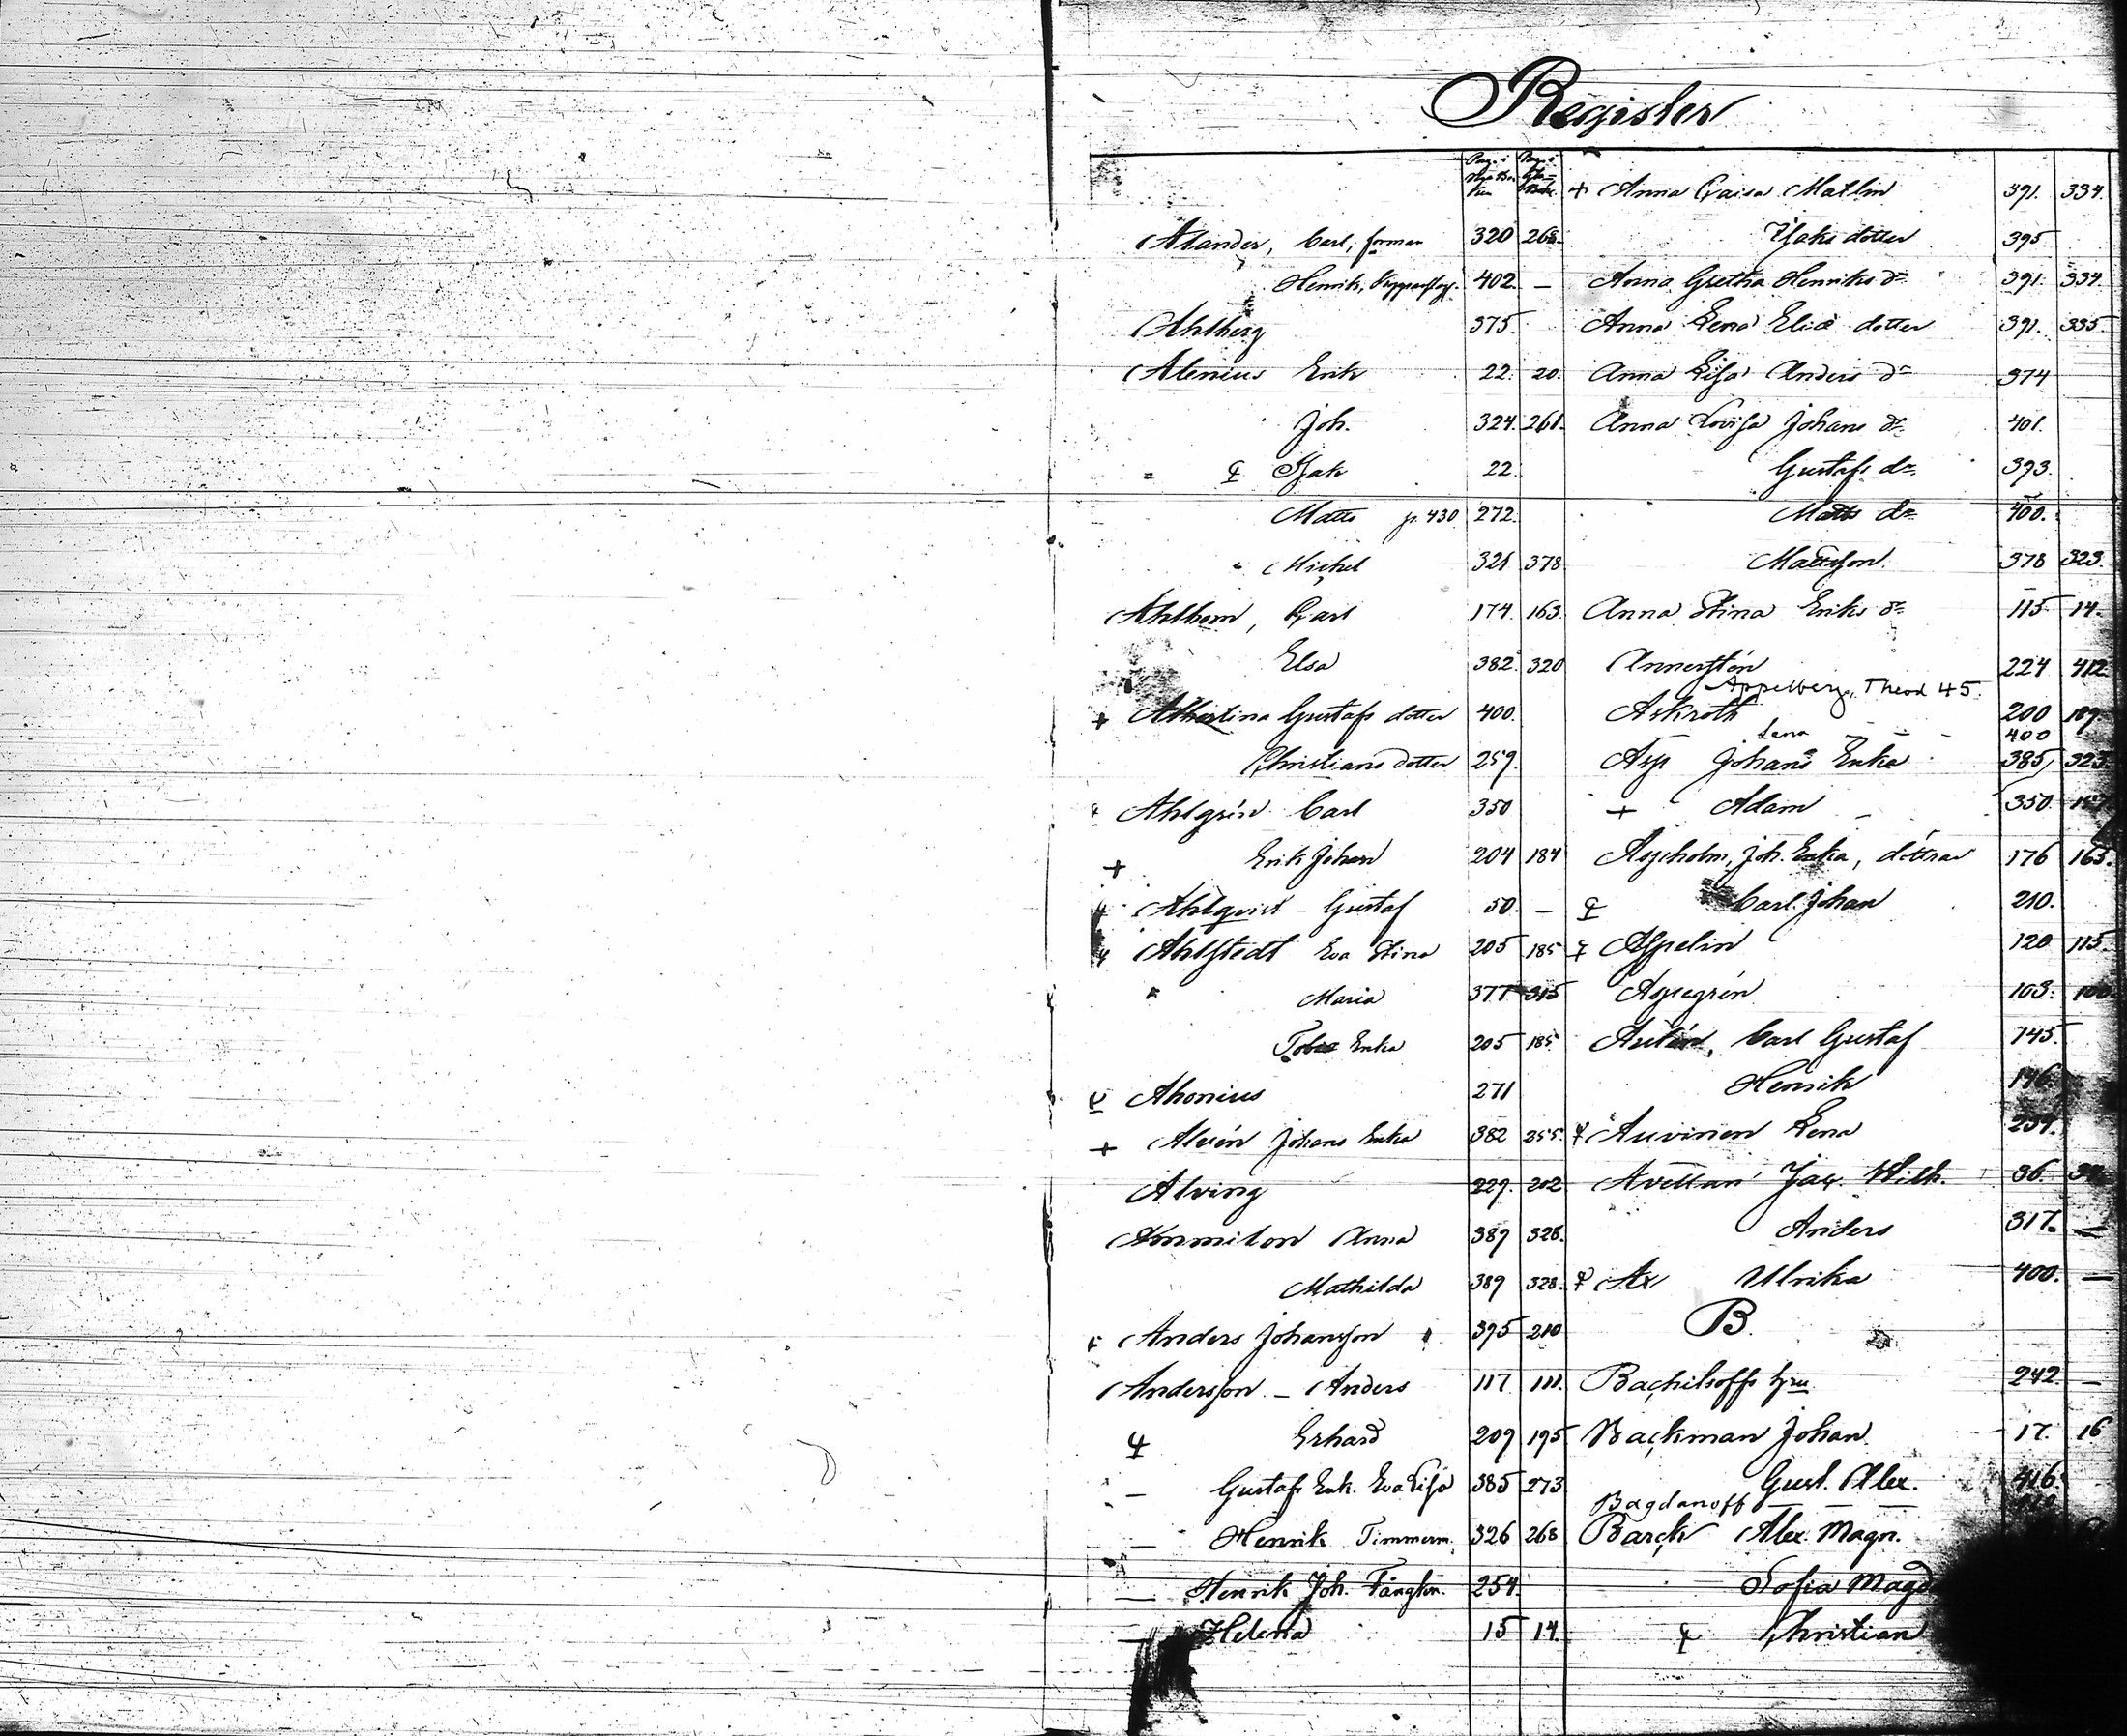 Register
Pag. i nya Boken Pag. i gla Boken
Alander, Carl, forman 320 268.
Henrik, 402. —
Ahlberg 375.
Alenius Erik 22. 20.
Joh. 324. 261.
" Isak 22.
Matts p. 430 272.
" Michel 321 378
Ahlbom, Carl 174. 163.
Elsa 382. 320
+ Albertina Gustafs dotter 400.
Christians dotter 259.
+ Ahlgrén Carl 350
+ Erik Johan 204 184
Ahlqvist Gustaf 50. —
Ahlstedt Eva Stina 205 185
Maria 377 315
Tobias Enka 205 185
Ahonius 271
+ Alvén Johans Enka 382 255.
Alving 229. 202
Ammilon Anna 389 328.
Mathilda 389 328.
Anders Johansson 395 210
Andersson — Anders 117 111.
Erhard 209 195
— Gustafs Enk. Eva Lisa 385 273
— Henrik Timmerm. 326 268
— Henrik Joh. Fångkn. 254.
— Helena 15 14.
+ Anna Caisa Matlin 391. 334.
Isaks dotter 395.
Anna Gretha Henriks dr 391. 334.
Anna Lena Eliæ dotter 391. 335
Anna Lisa Anders dr 374
Anna Lovisa Johans dr 401.
Gustafs dr 393.
Matts dr 400.
Mattsson 378 323.
Anna Stina Eriks dr 115 14.
Annerstén 224 412
Appelberg, Theod 45.
Askroth 200 189.
Lena — — 400
Asp Johans Enka 385 323
+ Adam 350.
Aspholm, Joh. Enka, döttrar 176 165.
Carl Johan 210.
Aspelin 120 115.
Aspegrén 103.
Autén, Carl Gustaf 145.
Henrik 146.
Auvinen Lena 239.
Avellan Jac. Wilh. 36.
Anders 317. —
Ax Ulrika 400. —
B.
Bachilsoffs 242. —
Backman Johan 17. 16
Gust. Alex. 416.
Bagdanoff — — —
Barck Alex. Magn.
Sofia Magd
Christian